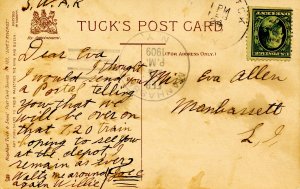 S.W.A.K
TUCK'S POST CARD
(FOR ADDRESS ONLY.)
Dear Eva
I thought
I would send you
a Postal telling
you that we
will be over on
that 7.20 train
hoping to see you
at the depot
remain as ever
Waltz me around
again Willie
Miss Eva Allen
Manhassett
L.I.
1909
P.M.